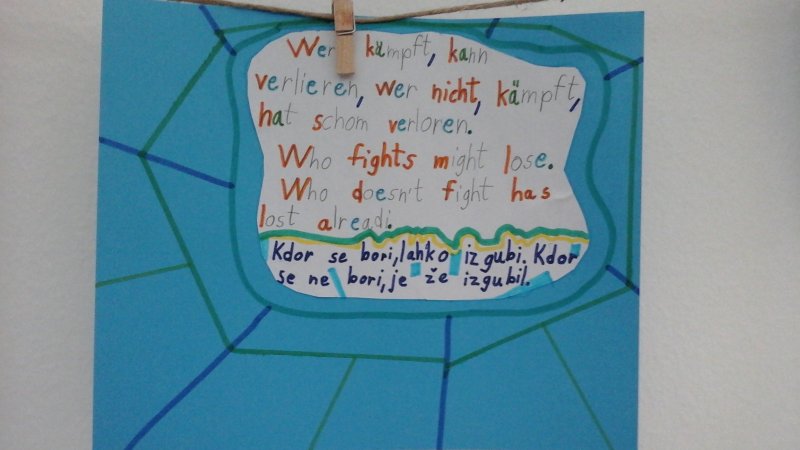 Wer kämpft, kann
verlieren, wer nicht, kämpft,
hat schom verloren.
Who fights might lose.
Who doesn't fight has
lost alreadi.
Kdor se bori, lahko izgubi. Kdor
se ne bori, je že izgubil.